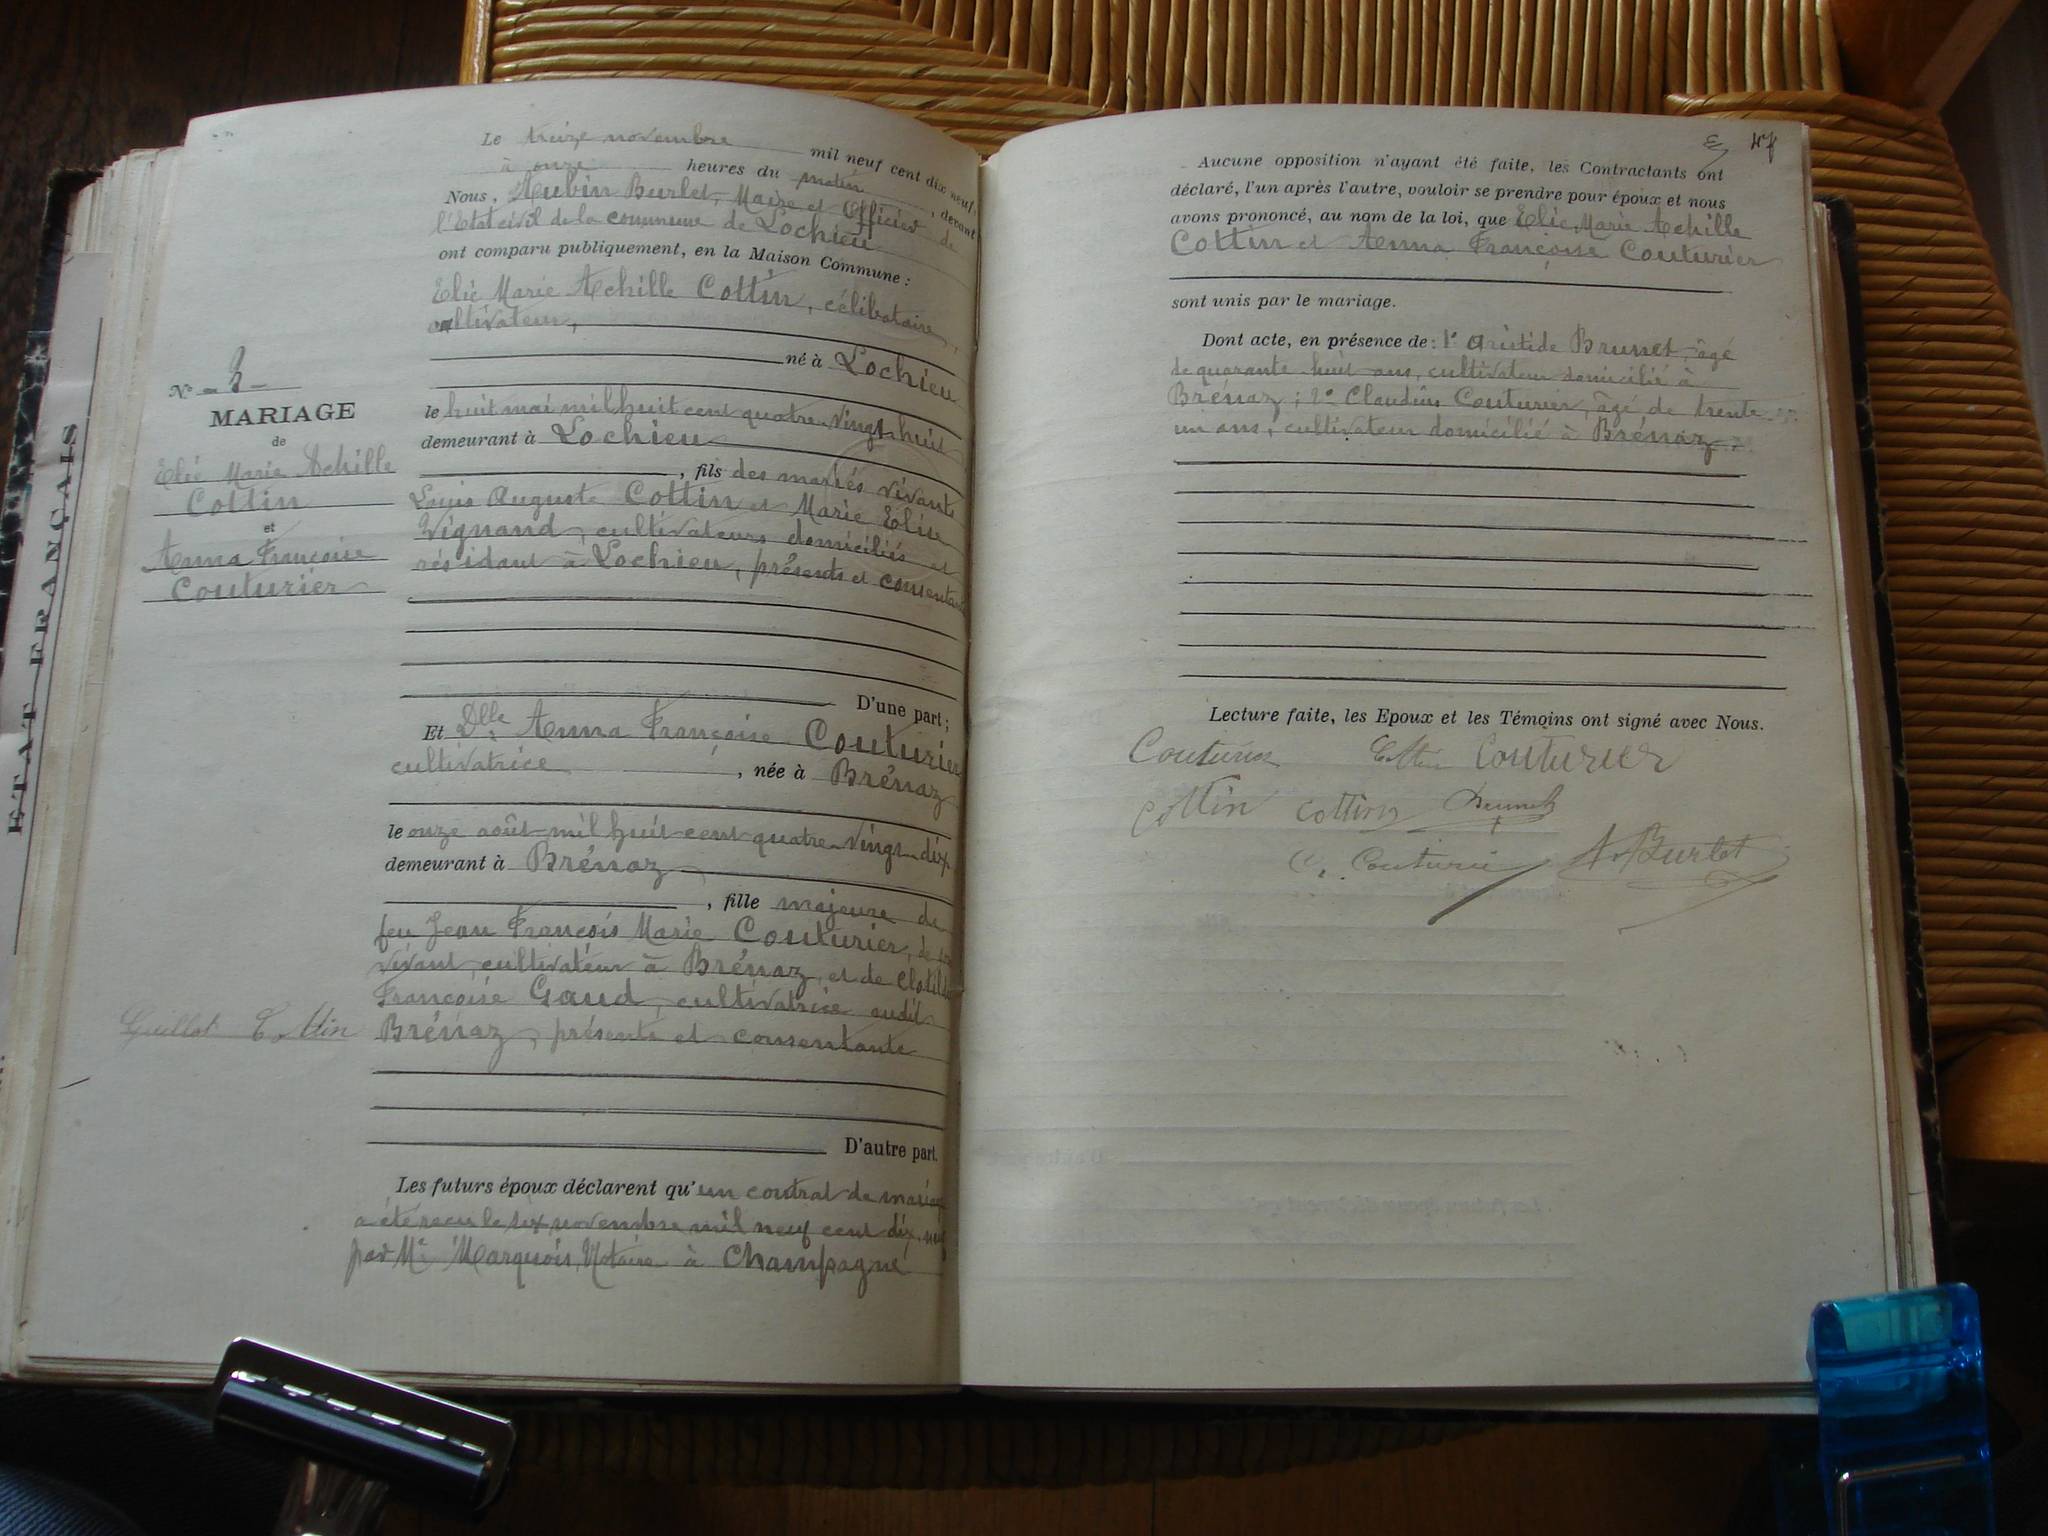 ETAT FRANÇAIS
Le treize novembre mil neuf cent dix neuf,
à onze heures du matin, devant
Nous, Aubin Burlet, Maire et Officier de
l'Etat civil de la commune de Lochieu
ont comparu publiquement, en la Maison Commune :
Elie Marie Achille Cottin, célibataire,
cultivateur,
né à Lochieu
le huit mai mil huit cent quatre-vingt-huit
demeurant à Lochieu
, fils des mariés vivants
Louis Auguste Cottin et Marie Elise
Vignand, cultivateurs domiciliés et
résidant à Lochieu, présents et consentants
D'une part ;
Et Dlle Anna Françoise Couturier
cultivatrice, née à Brénaz
le onze août mil huit cent quatre-vingt-dix
demeurant à Brénaz
, fille majeure de
feu Jean François Marie Couturier, de son
vivant cultivateur à Brénaz, et de Clotilde
Françoise Gaud, cultivatrice audit
Brénaz, présente et consentante
D'autre part.
Les futurs époux déclarent qu'un contrat de mariage
a été reçu le six novembre mil neuf cent dix-neuf
par Me Marquois, Notaire à Champagne
No - 3 -
MARIAGE
de
Elie Marie Achille
Cottin
et
Anna Françoise
Couturier
Guillot Cottin
47
Aucune opposition n'ayant été faite, les Contractants ont
déclaré, l'un après l'autre, vouloir se prendre pour époux et nous
avons prononcé, au nom de la loi, que Elie Marie Achille
Cottin et Anna Françoise Couturier
sont unis par le mariage.
Dont acte, en présence de : 1° Aristide Brunet, âgé
de quarante huit ans, cultivateur domicilié à
Brénaz ; 2° Claudius Couturier, âgé de trente
un ans, cultivateur domicilié à Brénaz
Lecture faite, les Epoux et les Témoins ont signé avec Nous.
Couturier Cottin Couturier
Cottin Cottin Brunet
C. Couturier A. Burlet